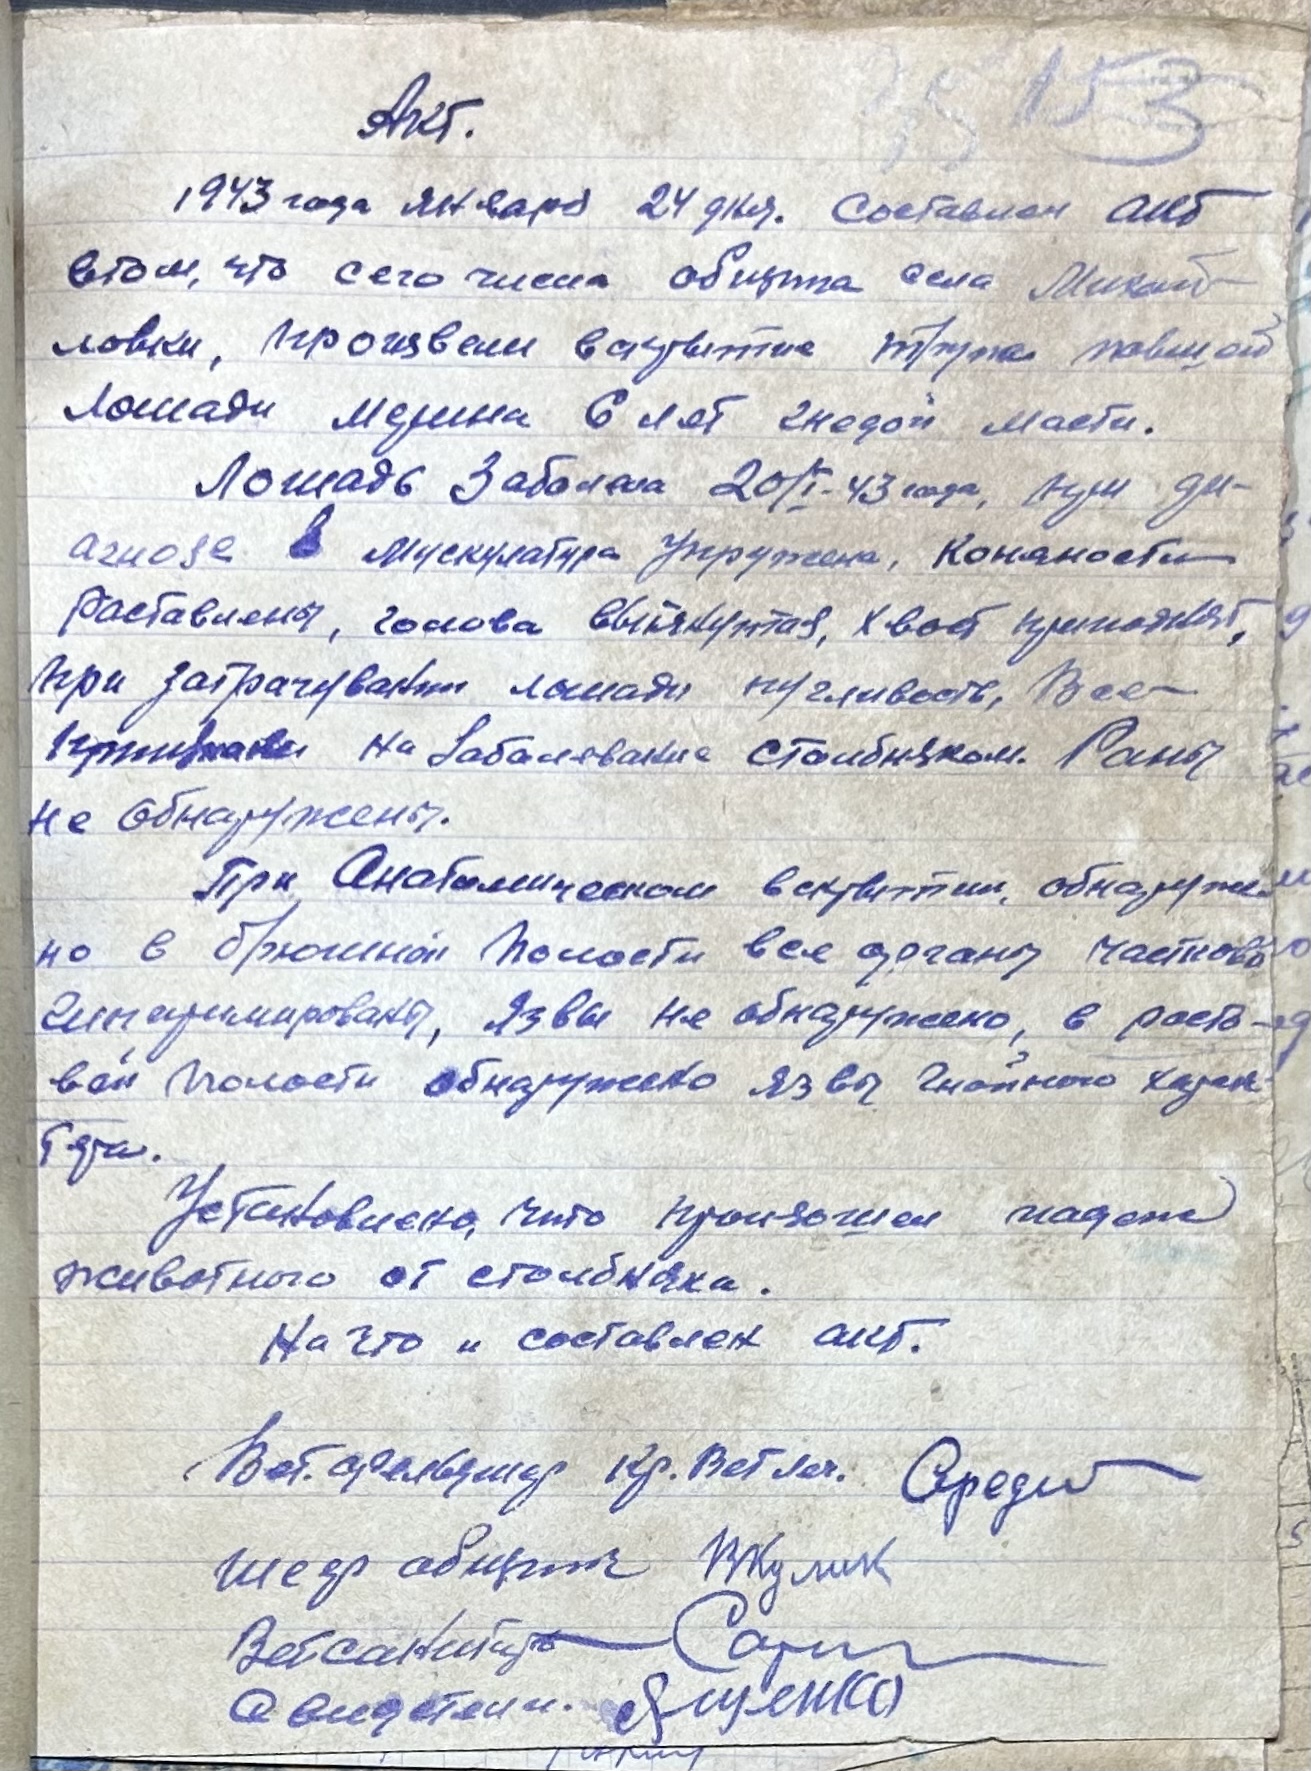 153
Акт.
1943 года января 24 дня. Составлен акт
втом, что сего числа община села Михай-
ловки, произвели вскрытие трупа павшой
лошади мерина 6 лет гнедой масти.
Лошадь Заболела 20/I-43 года, при ди-
агнозе в мускулатура упружена, Коняности
раставлены, голова вытянутая, хвост приподнят,
при затрачувании лошади пугливость, Все
признаки на Заболевание столбняком. Раны
не обнаружены.
При Анатомическом вскрытии, обнаруже-
но в брюшной полости все органы частково
гиперемированы, Язвы не обнаружено, в рото-
вой полости обнаружено язвы гнойного харак-
тера.
Установлено, что произошел падеж
животного от столбняка.
На что и составлен акт.
Вет. фельдшер Кр. Вет леч.
общины ВКулик
Ветсанитар
Свидетели. Ященко